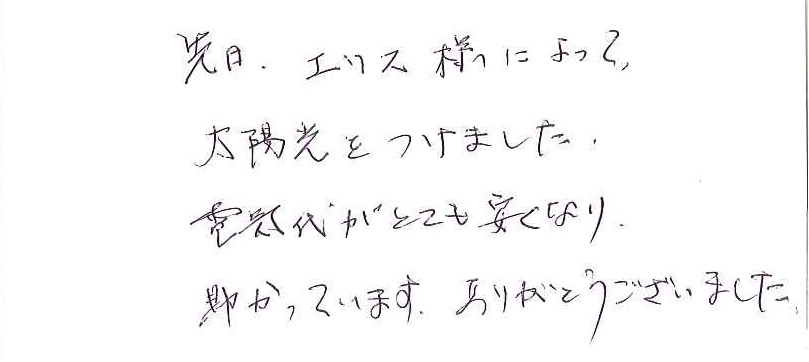 先日、エリス様によって、
太陽光をつけました。
電気代がとても安くなり、
助かっています。ありがとうございました。